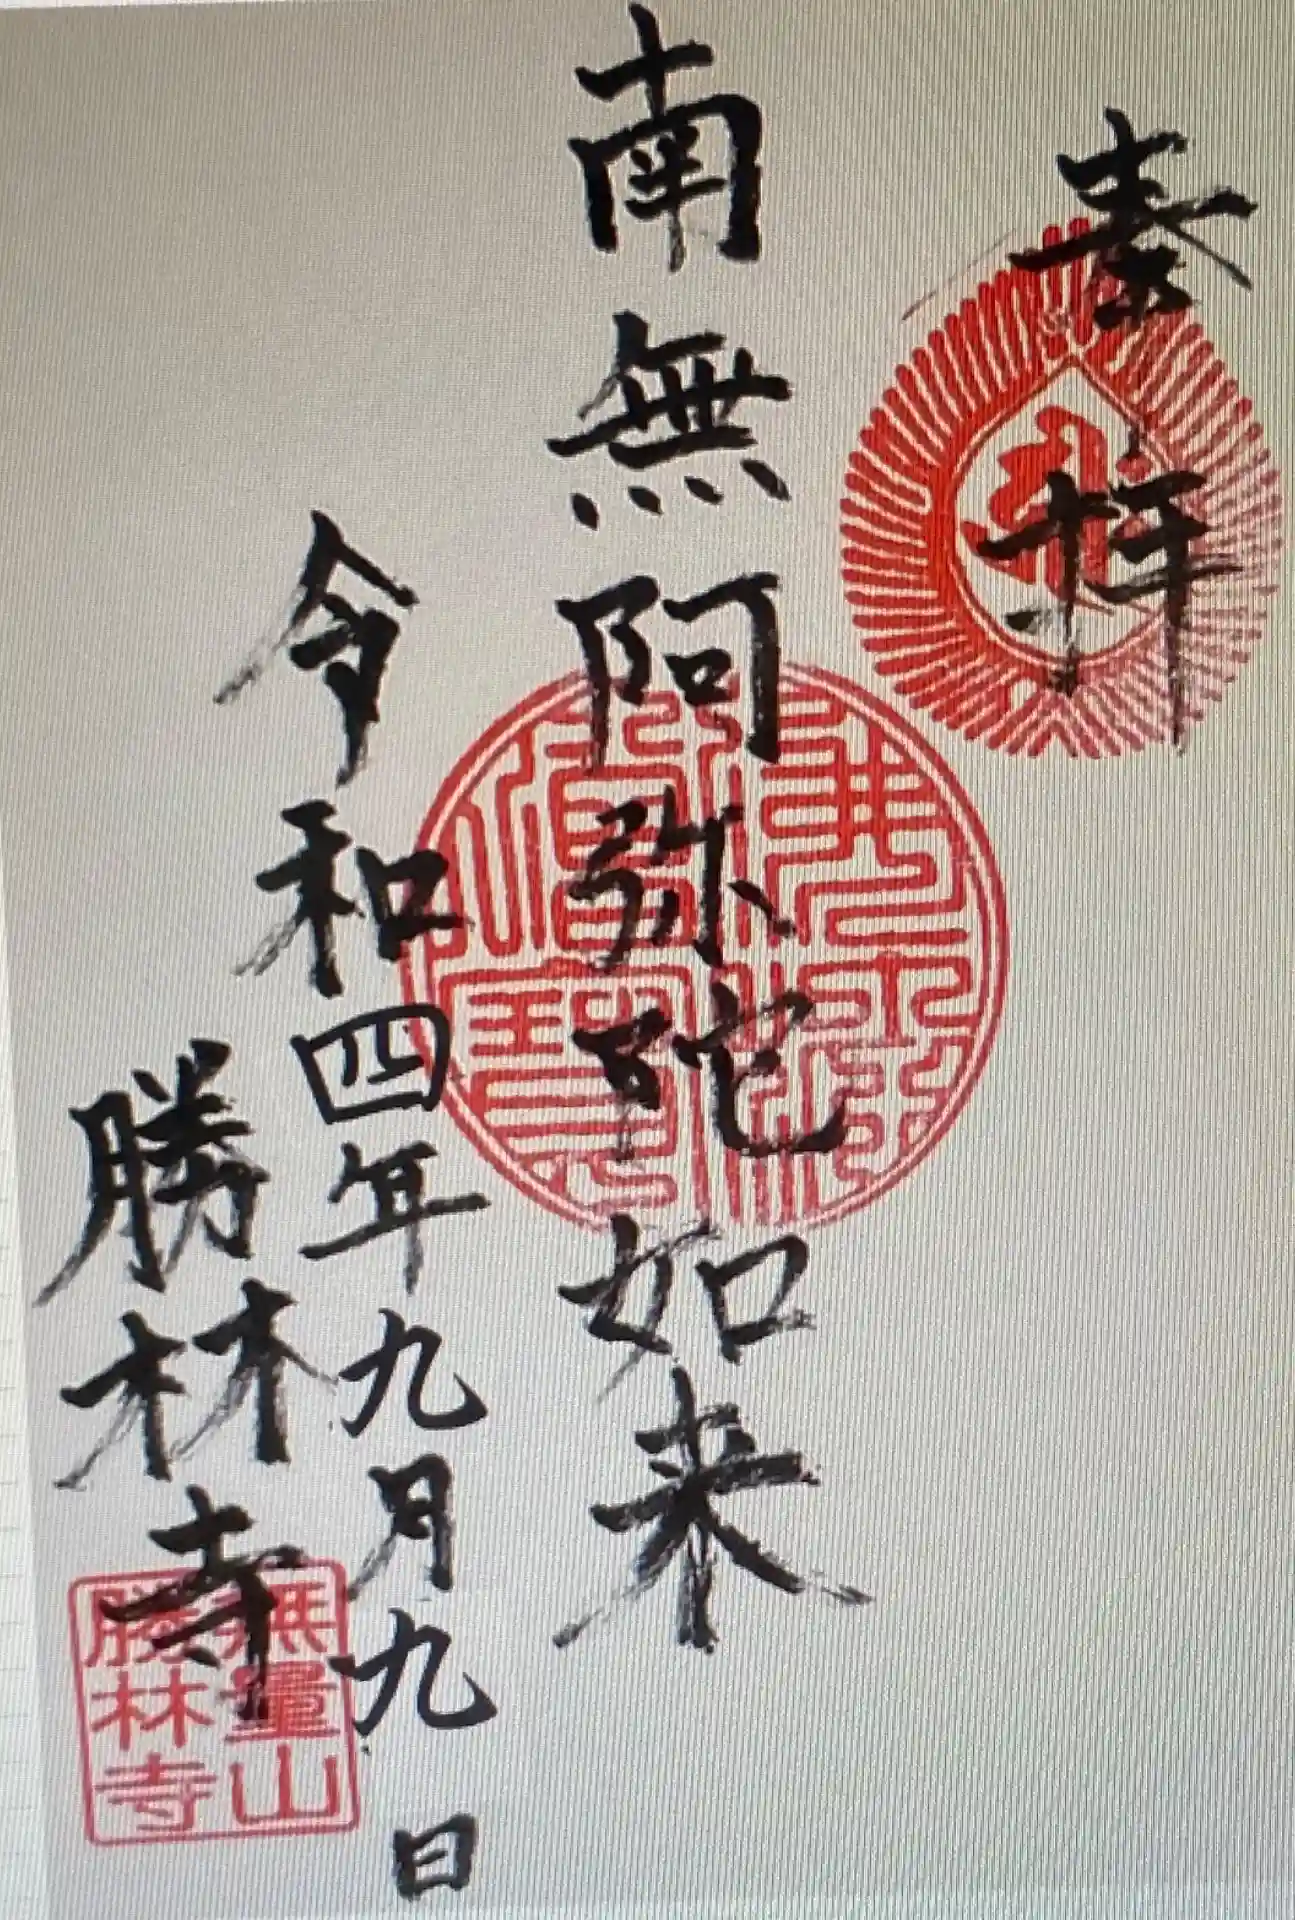 奉拝
南無阿弥陀如来
令和四年九月九日
勝林寺
佛法
僧寳
無量山
勝林寺